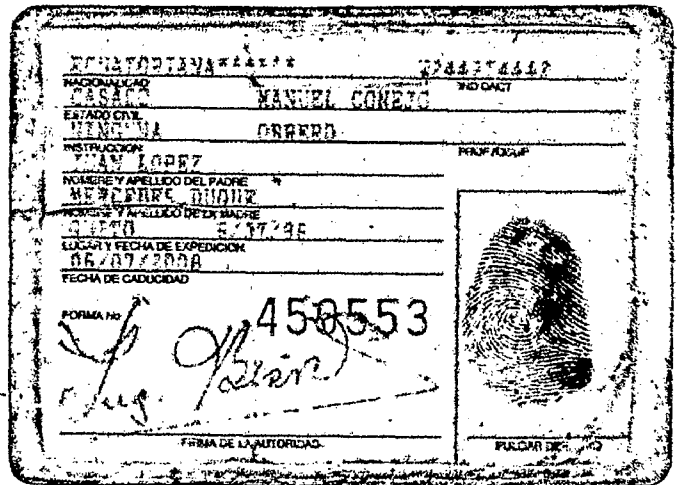 ECUATORIANA******
NACIONALIDAD IND DACT
CASADO MANUEL CONEJO
ESTADO CIVIL
NINGUNA OBRERO
INSTRUCCION PROF/OCUP
JUAN LOPEZ
NOMBRE Y APELLIDO DEL PADRE
MERCEDES DUQUE
NOMBRE Y APELLIDO DE LA MADRE
QUITO
LUGAR Y FECHA DE EXPEDICION
06/07/2008
FECHA DE CADUCIDAD
FORMA No
FIRMA DE LA AUTORIDAD
PULGAR